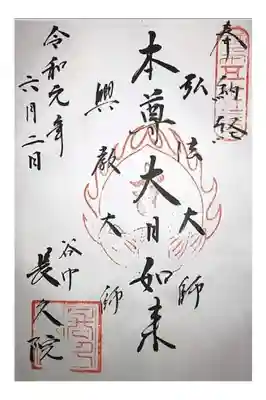 奉納経
弘法大師
本尊大日如来
興教大師
谷中
長久院
令和元年
六月二日